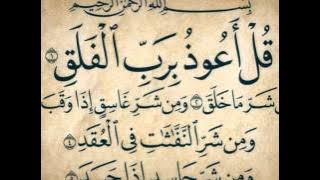 بِسْمِ اللَّهِ الرَّحْمَنِ الرَّحِيمِ
قُلْ أَعُوذُ بِرَبِّ ٱلْفَلَقِ ١
شَرِّ مَا خَلَقَ ٢ وَمِن شَرِّ غَاسِقٍ إِذَا وَقَبَ
وَمِن شَرِّ ٱلنَّفَّٰثَٰتِ فِى ٱلْعُقَدِ ٤
وَمِن شَرِّ حَاسِدٍ إِذَا حَسَدَ